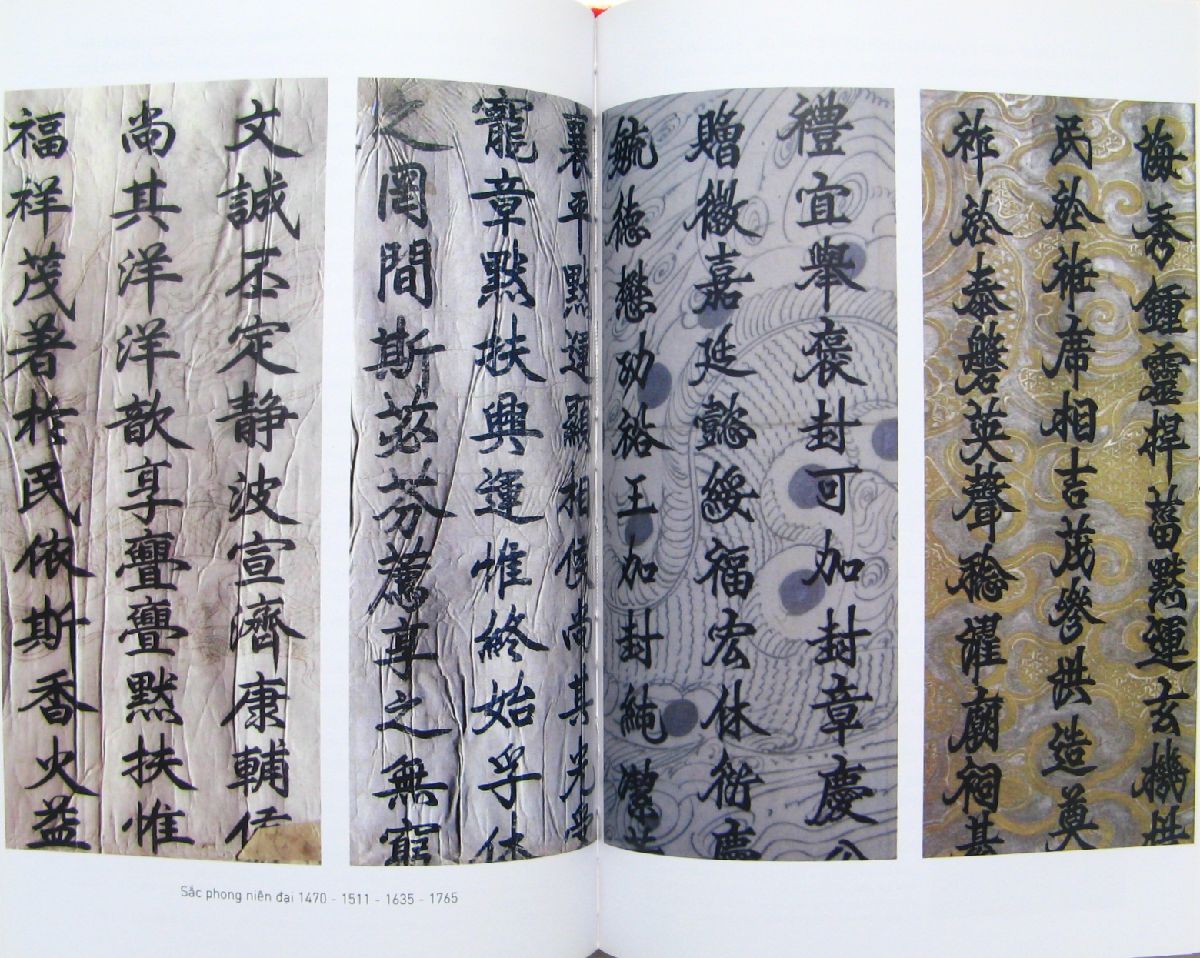 文誠丕定静波宣濟康輔
尚其洋洋歆享亹亹黙扶惟
福祥茂著於民依斯香火益
襄平黙運顯相俟尚其光受
寵章黙扶興運惟終始孚休
之罔間斯苾芬薦享之無窮
禮宜舉褒封可加封章慶
贈徽嘉延懿綏福宏休衍慶
毓德懋功裕王加封純潔
海秀鍾靈捍菑黙運玄機拱
民於袵席相吉茂參洪造奠
祚於泰磐英聲聡濯廟祠基
Sắc phong niên đại 1470 - 1511 - 1635 - 1765